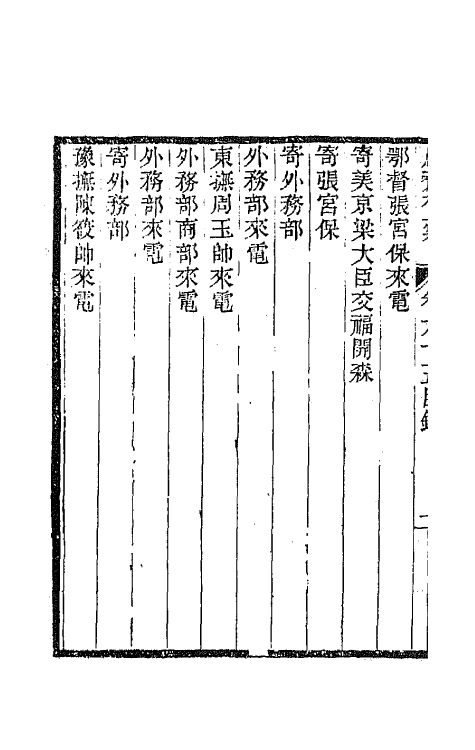 鄂督張宮保來電
寄美京梁大臣交福開森
寄張宮保
寄外務部
外務部來電
東撫周玉帥來電
外務部商部來電
外務部來電
寄外務部
豫撫陳筱帥來電